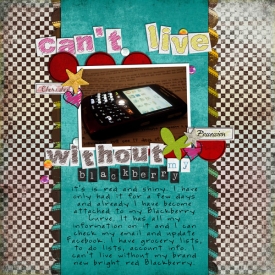 can't live
Cherish
Possession
without my
blackberry
it's is red and shiny. I have
only had it for a few days
and already I have become
attached to my Blackberry
Curve. It has all my
information on it and I can
check my email and update
facebook. I have grocery lists,
to do lists, account info. I
can't live without my brand
new bright red Blackberry.